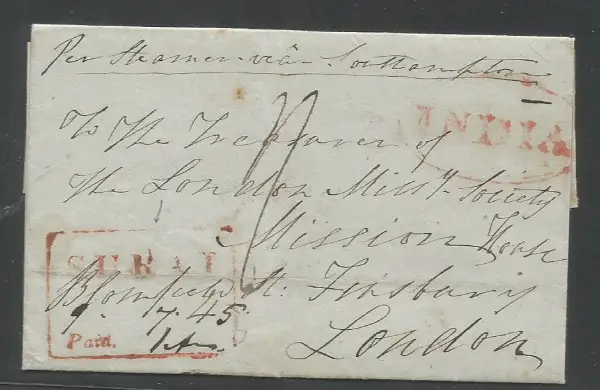 Per Steamer viâ Southampton
INDIA
To The Treasurer of
The London Missy Society
Mission House
SURAT
Blomfield St. Finsbury
9. 7. 45
Paid. 1 An.
London